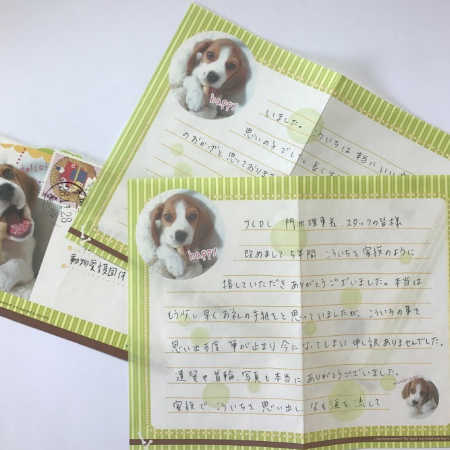 いました。
思いの子でした。
のおかげと思っておりま
happy
理事長 スタッフの皆様
改めまして 5年間 こういちを 家族のように
接していただき ありがとうございました。本当は
もう少し早くお礼の手紙をと思っていましたが、こういちの事を
思い出す度 筆が止まり 今になってしまい 申し訳ありませんでした。
遺骨や首輪、写真も本当に ありがとうございました。
家族で こういちを 思い出し 涙を流して
happy
動物愛護団体